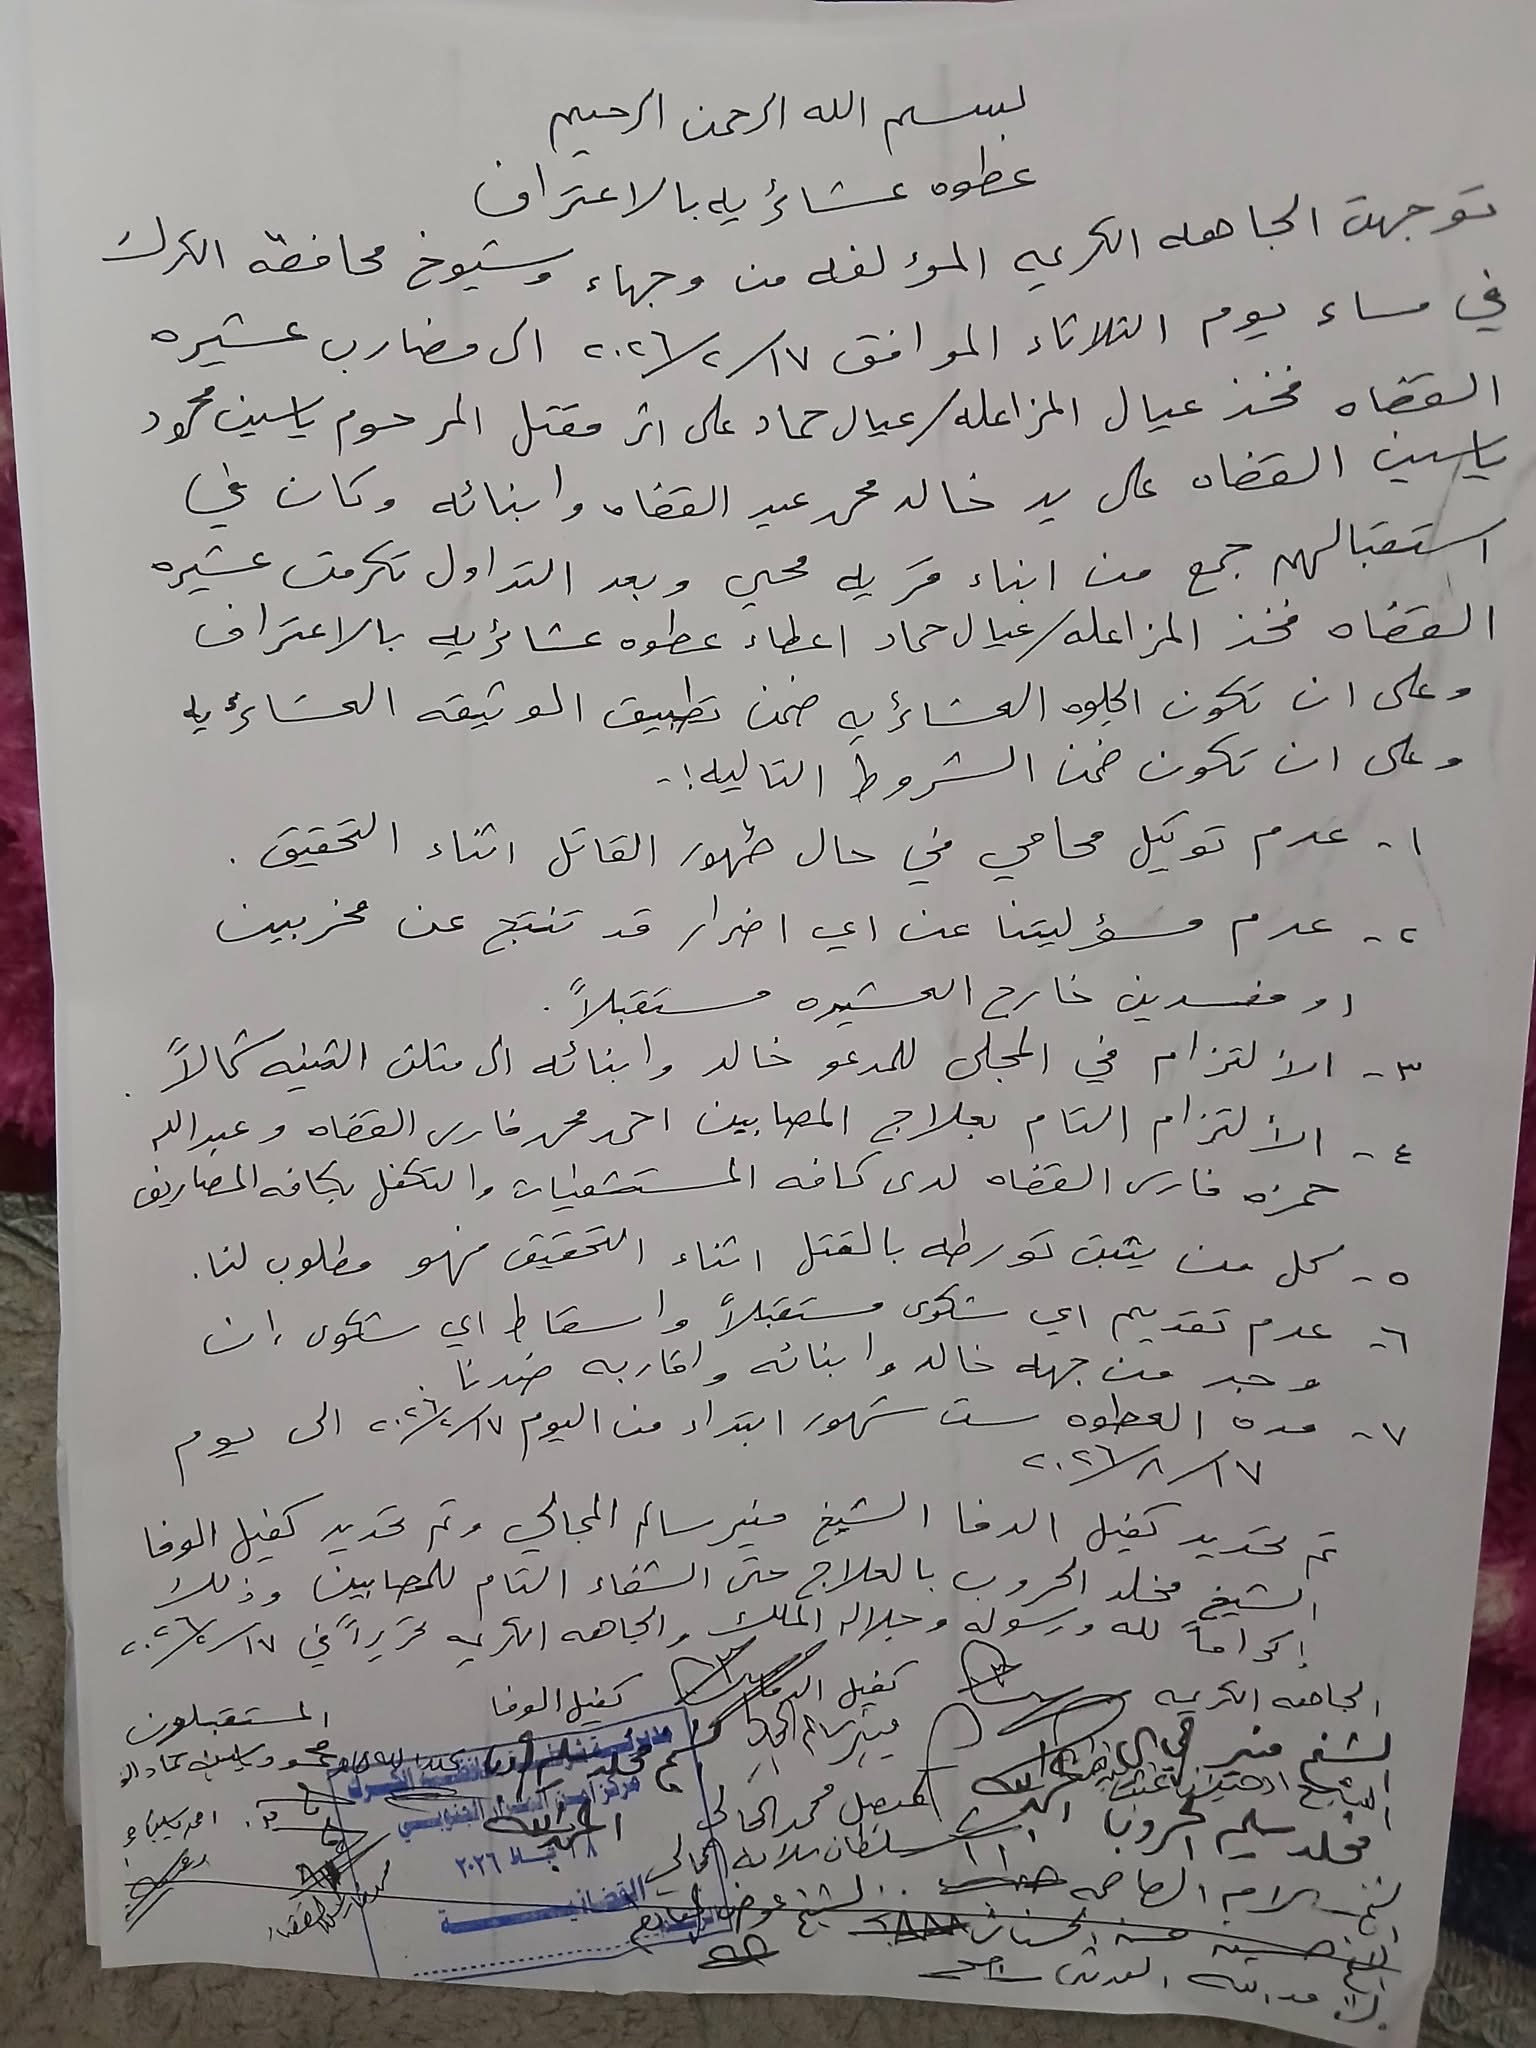 بسم الله الرحمن الرحيم
عطوه عشائريه بالاعتراف
توجهت الجاهه الكريمه المؤلفه من وجهاء وشيوخ محافظه الكرك
في مساء يوم الثلاثاء الموافق ٢٠٢٦/٢/١٧ الى مضارب عشيره
القضاه فخذ عيال المزاعله/عيال حماد على اثر مقتل المرحوم ياسين محمود
ياسين القضاه على يد خالد محمد عيد القضاه وابنائه وكان في
استقبالهم جمع من ابناء قريه محي وبعد التداول تكرمت عشيره
القضاه فخذ المزاعله/عيال حماد اعطاء عطوه عشائريه بالاعتراف
وعلى ان تكون الجلوه العشائريه ضمن تطبيق الوثيقه العشائريه
وعلى ان تكون ضمن الشروط التاليه:-
١- عدم توكيل محامي في حال ظهور القاتل اثناء التحقيق.
٢- عدم مسؤليتنا عن اي اضرار قد تنتج عن مخربين
او مفسدين خارج العشيره مستقبلاً.
٣- الألتزام في المجلى للمدعو خالد وابنائه الى مثلث الثنيه شمالاً.
٤- الألتزام التام بعلاج المصابين احمد محمد فارس القضاه وعبدالله
حمزه فارس القضاه لدى كافه المستشفيات والتكفل بكافه المصاريف
٥- كل من يثبت تورطه بالقتل اثناء التحقيق فهو مطلوب لنا.
٦- عدم تقديم اي شكوى مستقبلاً واسقاط اي شكوى ان
وجد من جهه خالد وابنائه واقاربه ضدنا.
٧- مده العطوه ست شهور ابتداء من اليوم ٢٠٢٦/٢/١٧ الى يوم
٢٠٢٦/٨/١٧
تم تحديد كفيل الدفا الشيخ منير سالم المجالي وتم تحديد كفيل الوفا
الشيخ مخلد الحروب بالعلاج حتى الشفاء التام للمصابين وذلك
إكراماً لله ورسوله وجلاله الملك والجاهه الكريمه تحريراً في ٢٠٢٦/٢/١٧
الجاهه الكريمه كفيل الدفا كفيل الوفا المستقبلون
الشيخ منير
مخلد سليم الحروب
فيصل محمد المجالي
سلطان سلامه المجالي
الشيخ عوض
١٨ شباط ٢٠٢٦
القضائيـــة